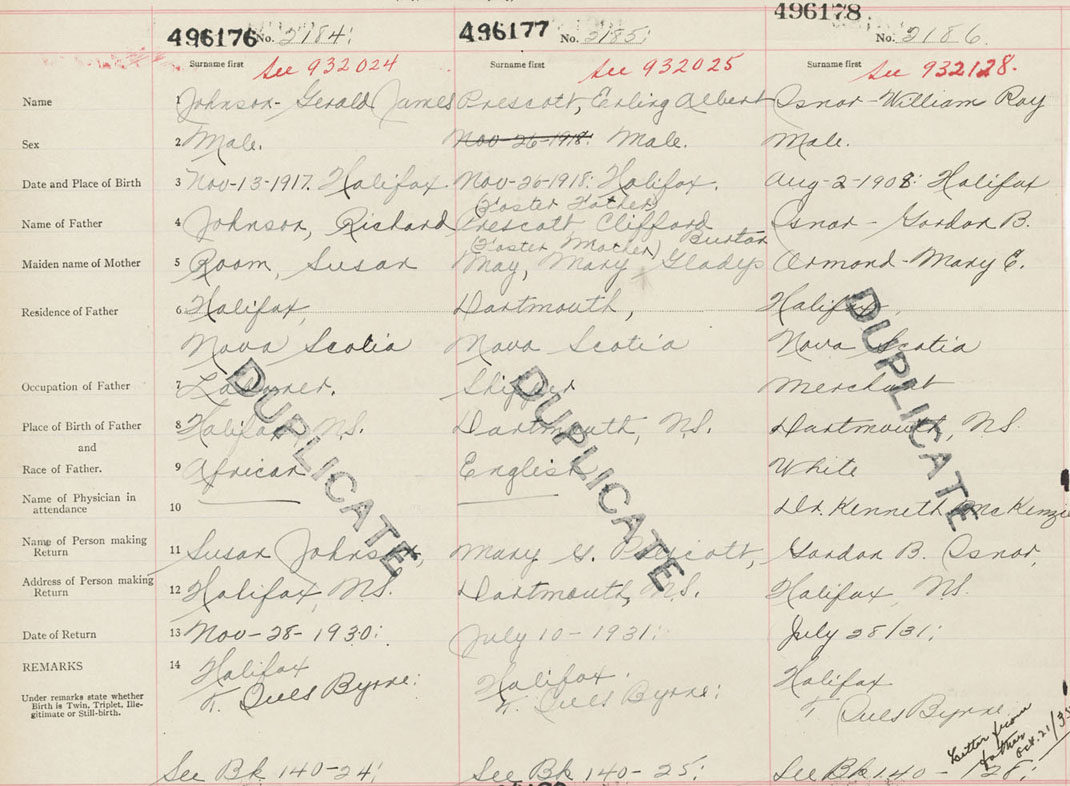 496176 No. 2184 496177 No. 2185 496178 No. 2186
Surname first See 932024 Surname first See 932025 Surname first See 932128.
Name 1 Johnson - Gerald James Prescott, Erling Albert Isnor - William Roy
Sex 2 Male. Nov-26-1918: Male. Male.
Date and Place of Birth 3 Nov-13-1917. Halifax. Nov-26-1918: Halifax. Aug-2-1908: Halifax
(Foster Father)
Name of Father 4 Johnson, Richard Prescott, Clifford Burton Isnor - Gordon B.
(Foster Mother)
Maiden name of Mother 5 Room, Susan May, Mary Gladys Ormond - Mary E.
Residence of Father 6 Halifax, Dartmouth, Halifax,
Nova Scotia Nova Scotia Nova Scotia
Occupation of Father 7 Labourer. Shipper Merchant
Place of Birth of Father 8 Halifax N.S. Dartmouth, N.S. Dartmouth, N.S.
and
Race of Father. 9 African English White
Name of Physician in
attendance 10 Dr. Kenneth McKenzie
Name of Person making
Return 11 Susan Johnson, Mary G. Prescott, Gordon B. Isnor,
Address of Person making
Return 12 Halifax, N.S. Dartmouth, N.S. Halifax, N.S.
Date of Return 13 Nov-28-1930: July 10-1931: July 28/31:
REMARKS 14 Halifax Halifax. Halifax
Under remarks state whether
Birth is Twin, Triplet, Ille-
gitimate or Still-birth.
Byrne: Byrne: Byrne
Letter from
father
Oct. 21/35
See Bk 140-24: See Bk 140-25: See Bk 140-128:
DUPLICATE DUPLICATE DUPLICATE